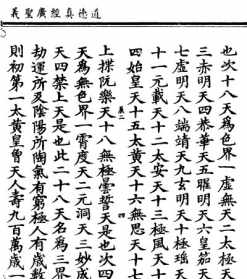 道德真經廣聖義
也次十八天色界一虛無天二太極天
三赤明天四恭華天五曜明天六皇笳
七虛明天八端靖天九玄明天十極瑤天
十一元載天十二太安天十三極風天十
四始皇天十五太黃天十六無思天十七
卷二 四
上揲阮樂天十八無極曇誓天是也次四
天爲無色界一霄度天二元洞天三妙成
天四禁上天是也此二十八天名爲三界
劫運所及陰陽所陶氣有窮極人有歲數
則初第一太黃皇曾天人壽九百萬歲一